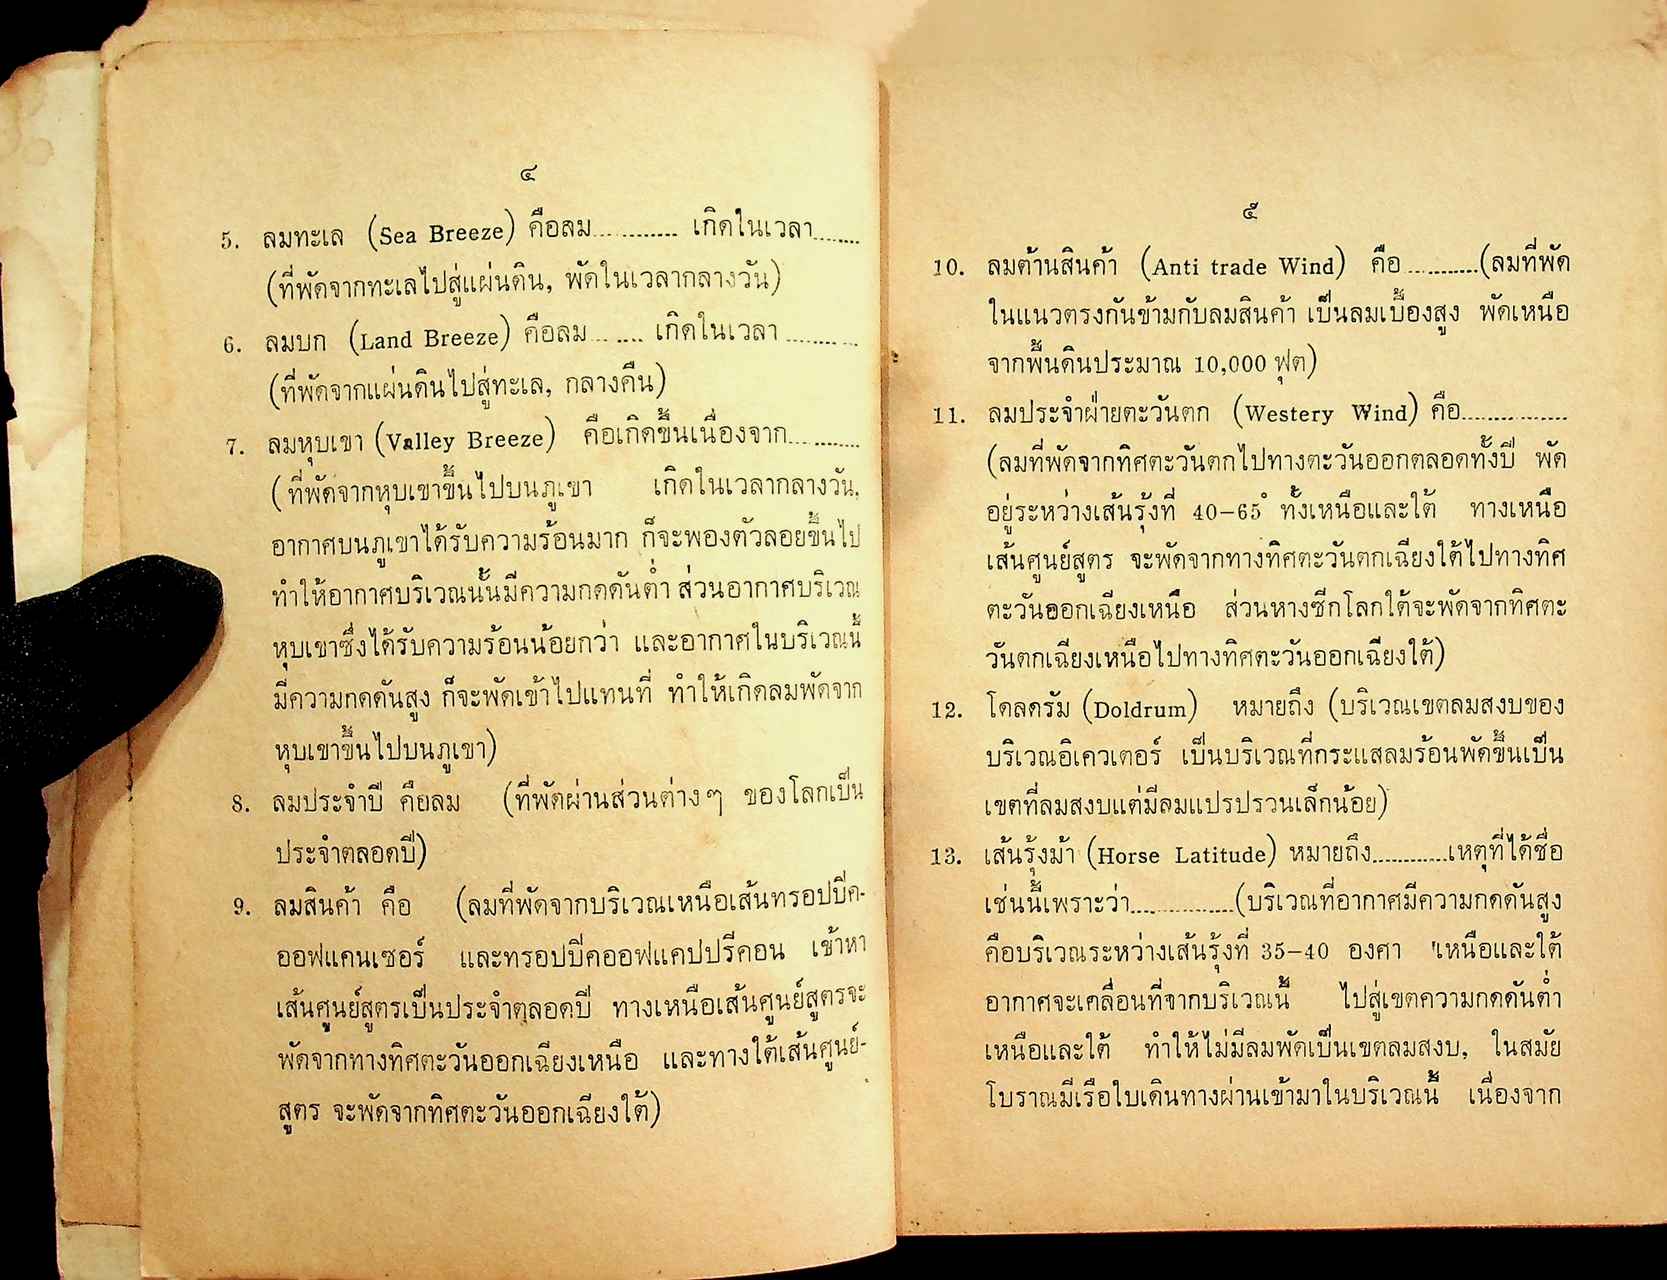 ๔
5. ลมทะเล (Sea Breeze) คือลม............ เกิดในเวลา.......
(ที่พัดจากทะเลไปสู่แผ่นดิน, พัดในเวลากลางวัน)
6. ลมบก (Land Breeze) คือลม....... เกิดในเวลา..........
(ที่พัดจากแผ่นดินไปสู่ทะเล, กลางคืน)
7. ลมหุบเขา (Valley Breeze) คือเกิดขึ้นเนื่องจาก...........
(ที่พัดจากหุบเขาขึ้นไปบนภูเขา เกิดในเวลากลางวัน,
อากาศบนภูเขาได้รับความร้อนมาก ก็จะพองตัวลอยขึ้นไป
ทำให้อากาศบริเวณนั้นมีความกดดันต่ำ ส่วนอากาศบริเวณ
หุบเขาซึ่งได้รับความร้อนน้อยกว่า และอากาศในบริเวณนี้
มีความกดดันสูง ก็จะพัดเข้าไปแทนที่ ทำให้เกิดลมพัดจาก
หุบเขาขึ้นไปบนภูเขา)
8. ลมประจำปี คือลม (ที่พัดผ่านส่วนต่างๆ ของโลกเป็น
ประจำตลอดปี)
9. ลมสินค้า คือ (ลมที่พัดจากบริเวณเหนือเส้นทรอปปิค-
ออฟแคนเซอร์ และทรอปปิคออฟแคปปรีคอน เข้าหา
เส้นศูนย์สูตรเป็นประจำตลอดปี ทางเหนือเส้นศูนย์สูตรจะ
พัดจากทางทิศตะวันออกเฉียงเหนือ และทางใต้เส้นศูนย์-
สูตร จะพัดจากทิศตะวันออกเฉียงใต้)
๕
10. ลมต้านสินค้า (Anti trade Wind) คือ ..........(ลมที่พัด
ในแนวตรงกันข้ามกับลมสินค้า เป็นลมเบื้องสูง พัดเหนือ
จากพื้นดินประมาณ 10,000 ฟุต)
11. ลมประจำฝ่ายตะวันตก (Westery Wind) คือ...............
(ลมที่พัดจากทิศตะวันตกไปทางตะวันออกตลอดทั้งปี พัด
อยู่ระหว่างเส้นรุ้งที่ 40-65° ทั้งเหนือและใต้ ทางเหนือ
เส้นศูนย์สูตร จะพัดจากทางทิศตะวันตกเฉียงใต้ไปทางทิศ
ตะวันออกเฉียงเหนือ ส่วนหางซีกโลกใต้จะพัดจากทิศตะ
วันตกเฉียงเหนือไปทางทิศตะวันออกเฉียงใต้)
12. โดลดรัม (Doldrum) หมายถึง (บริเวณเขตลมสงบของ
บริเวณอิเควเตอร์ เป็นบริเวณที่กระแสลมร้อนพัดขึ้นเป็น
เขตที่ลมสงบแต่มีลมแปรปรวนเล็กน้อย)
13. เส้นรุ้งม้า (Horse Latitude) หมายถึง...........เหตุที่ได้ชื่อ
เช่นนี้เพราะว่า...............(บริเวณที่อากาศมีความกดดันสูง
คือบริเวณระหว่างเส้นรุ้งที่ 35-40 องศา เหนือและใต้
อากาศจะเคลื่อนที่จากบริเวณนี้ ไปสู่เขตความกดดันต่ำ
เหนือและใต้ ทำให้ไม่มีลมพัดเป็นเขตลมสงบ, ในสมัย
โบราณมีเรือใบเดินทางผ่านเข้ามาในบริเวณนี้ เนื่องจาก